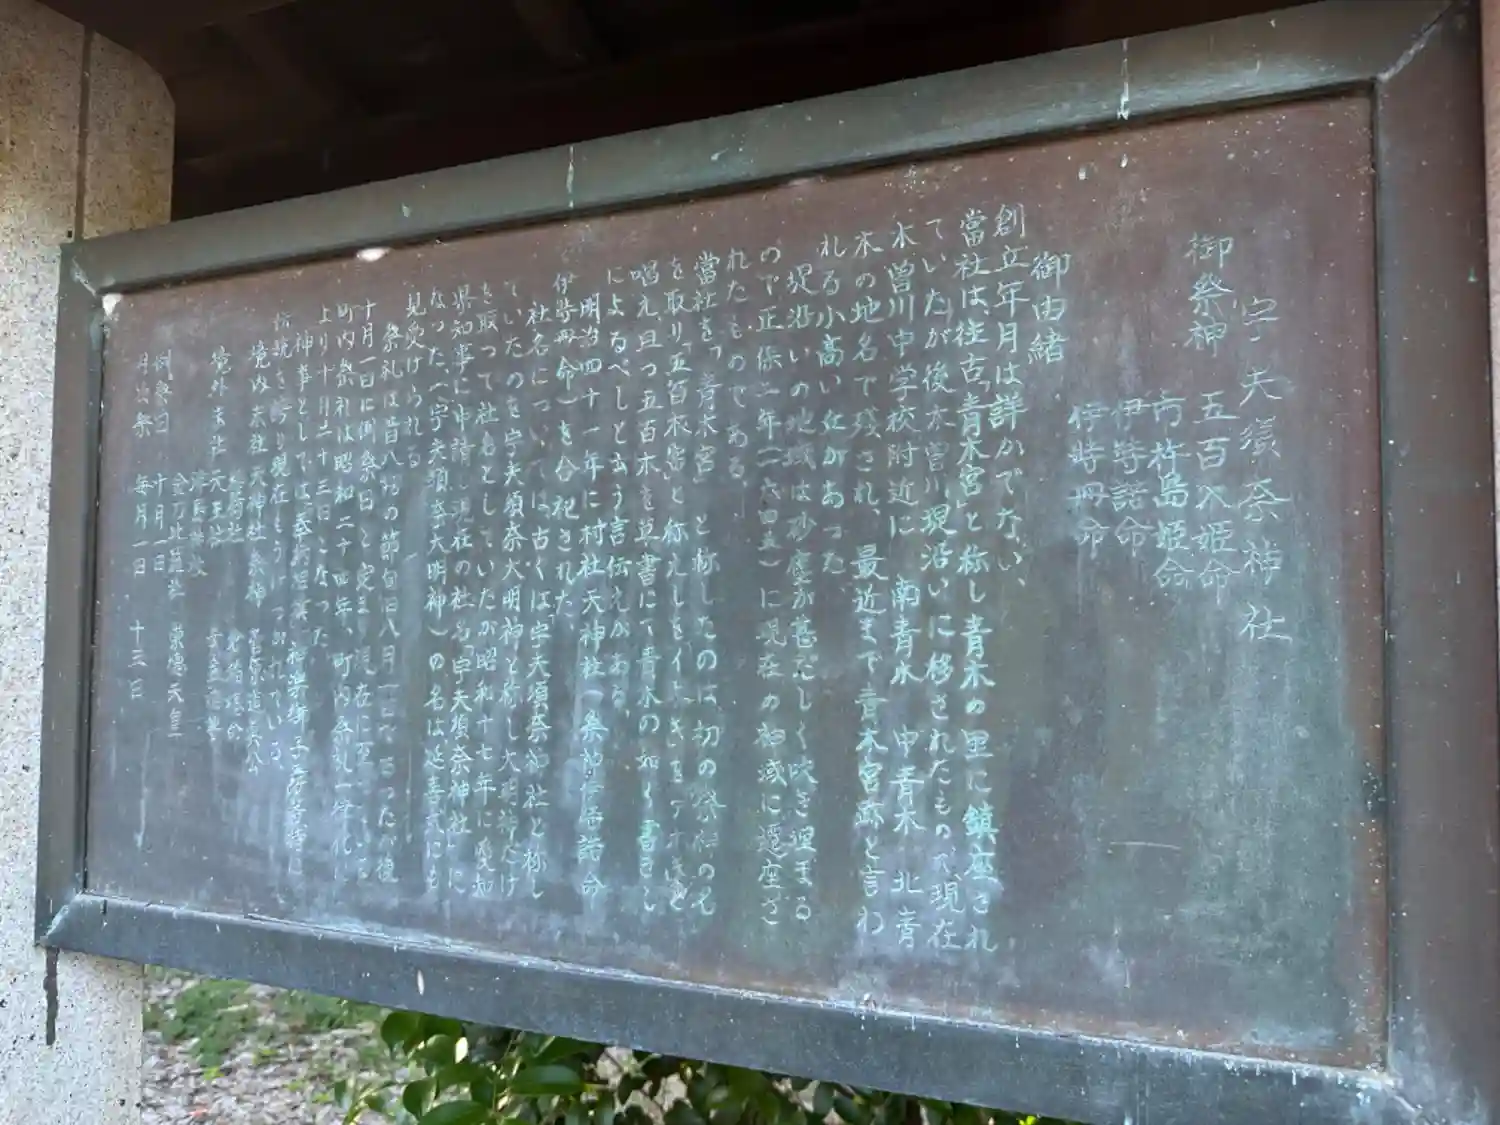 宇夫須奈神社
御祭神
五百入姫命
市杵島姫命
伊弉諾命
伊弉冊命
御由緒
創立年月は詳かでない、
當社は往古「青木宮」と称し青木の里に鎮座され
ていたが後木宮川、現沿いに移されたもので、現在
木曽川中学校附近に、南青木、中青木、北青
木の地名で残され、最近まで青木宮跡と言わ
れる小高い丘があった、
堤沿いの地域は砂塵が甚だしく吹き埋まる
ので正保二年(一六四五)に現在の神域に遷座さ
れたものである、
當社を「青木宮」と称したのは初の祭神の名
を取り「五百木宮」と称えしを
唱え且つ五百木を草書にて青木の如く書きし
によるべしと云う言伝えがある、
明治四十一年に村社天神社(祭神伊弉諾命
伊弉冊命)を合祀された、
社名については古くは宇夫須奈神社と称し
ていたのを宇夫須奈大明神と称し大明神だけ
を取って社名としていたが昭和十七年に愛知
県知事に申請し現在の社名「宇夫須奈神社」に
なった、(宇夫須奈大明神)の名は延喜式にも
見受けられる
祭礼は昔八朔の節旬旧八月一日であったが後
十月一日に例祭日と定まり現在に至っている
町内祭礼は昭和二十四年、町内
より十月二十三日となった、
神事としては
現在
境内末社 天神社 祭神 菅原道真公
境外末社
例祭日 十月一日
月次祭 毎月一日 十三日